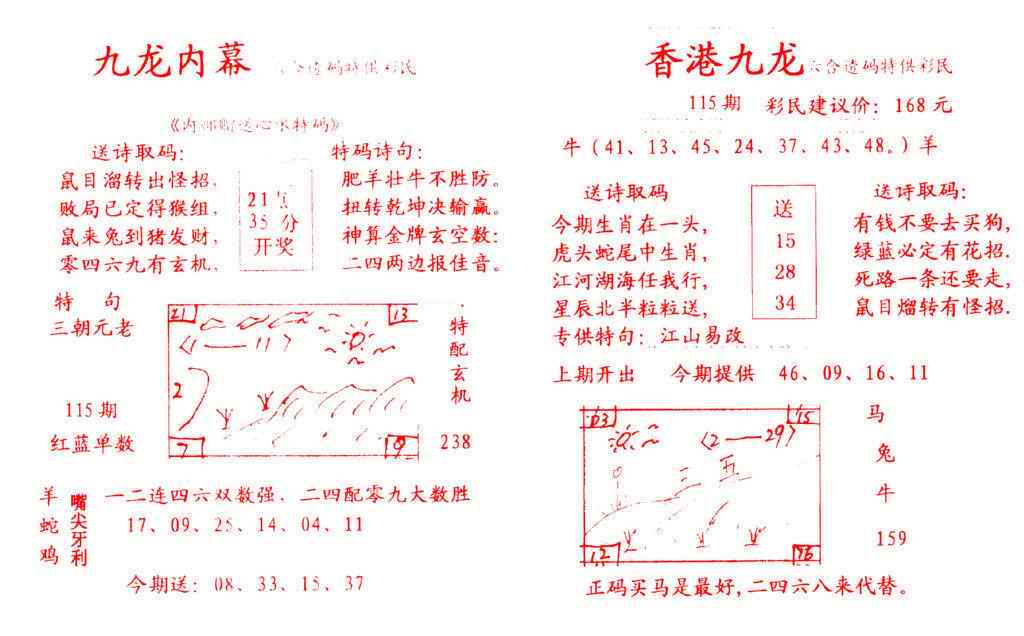 九龙内幕
合造码特供彩民
送诗取码：
鼠目溜转出怪招，
败局已定得猴组，
鼠来兔到猪发财，
零四六九有玄机，
21
35 分
开奖
特码诗句：
肥羊壮牛不胜防。
扭转乾坤决输赢。
神算金牌玄空数：
二四两边报佳音。
特 句
三朝元老
115 期
红蓝单数
21
13
〈1——11〉
2
7
9
特配玄机
238
羊蛇鸡
嘴尖牙利
一二连四六双数强、二四配零九大数胜
17、09、25、14、04、11
今期送：08、33、15、37
香港九龙
六合造码特供彩民
115 期 彩民建议价：168 元
牛（41、13、45、24、37、43、48。）羊
送诗取码
今期生肖在一头，
虎头蛇尾中生肖，
江河湖海任我行，
星辰北半粒粒送，
专供特句：江山易改
送
15
28
34
送诗取码：
有钱不要去买狗，
绿蓝必定有花招．
死路一条还要走，
鼠目熘转有怪招．
上期开出 今期提供 46、09、16、11
03
15
〈2——29〉
三 五
12
马
兔
牛
159
正码买马是最好，二四六八来代替。